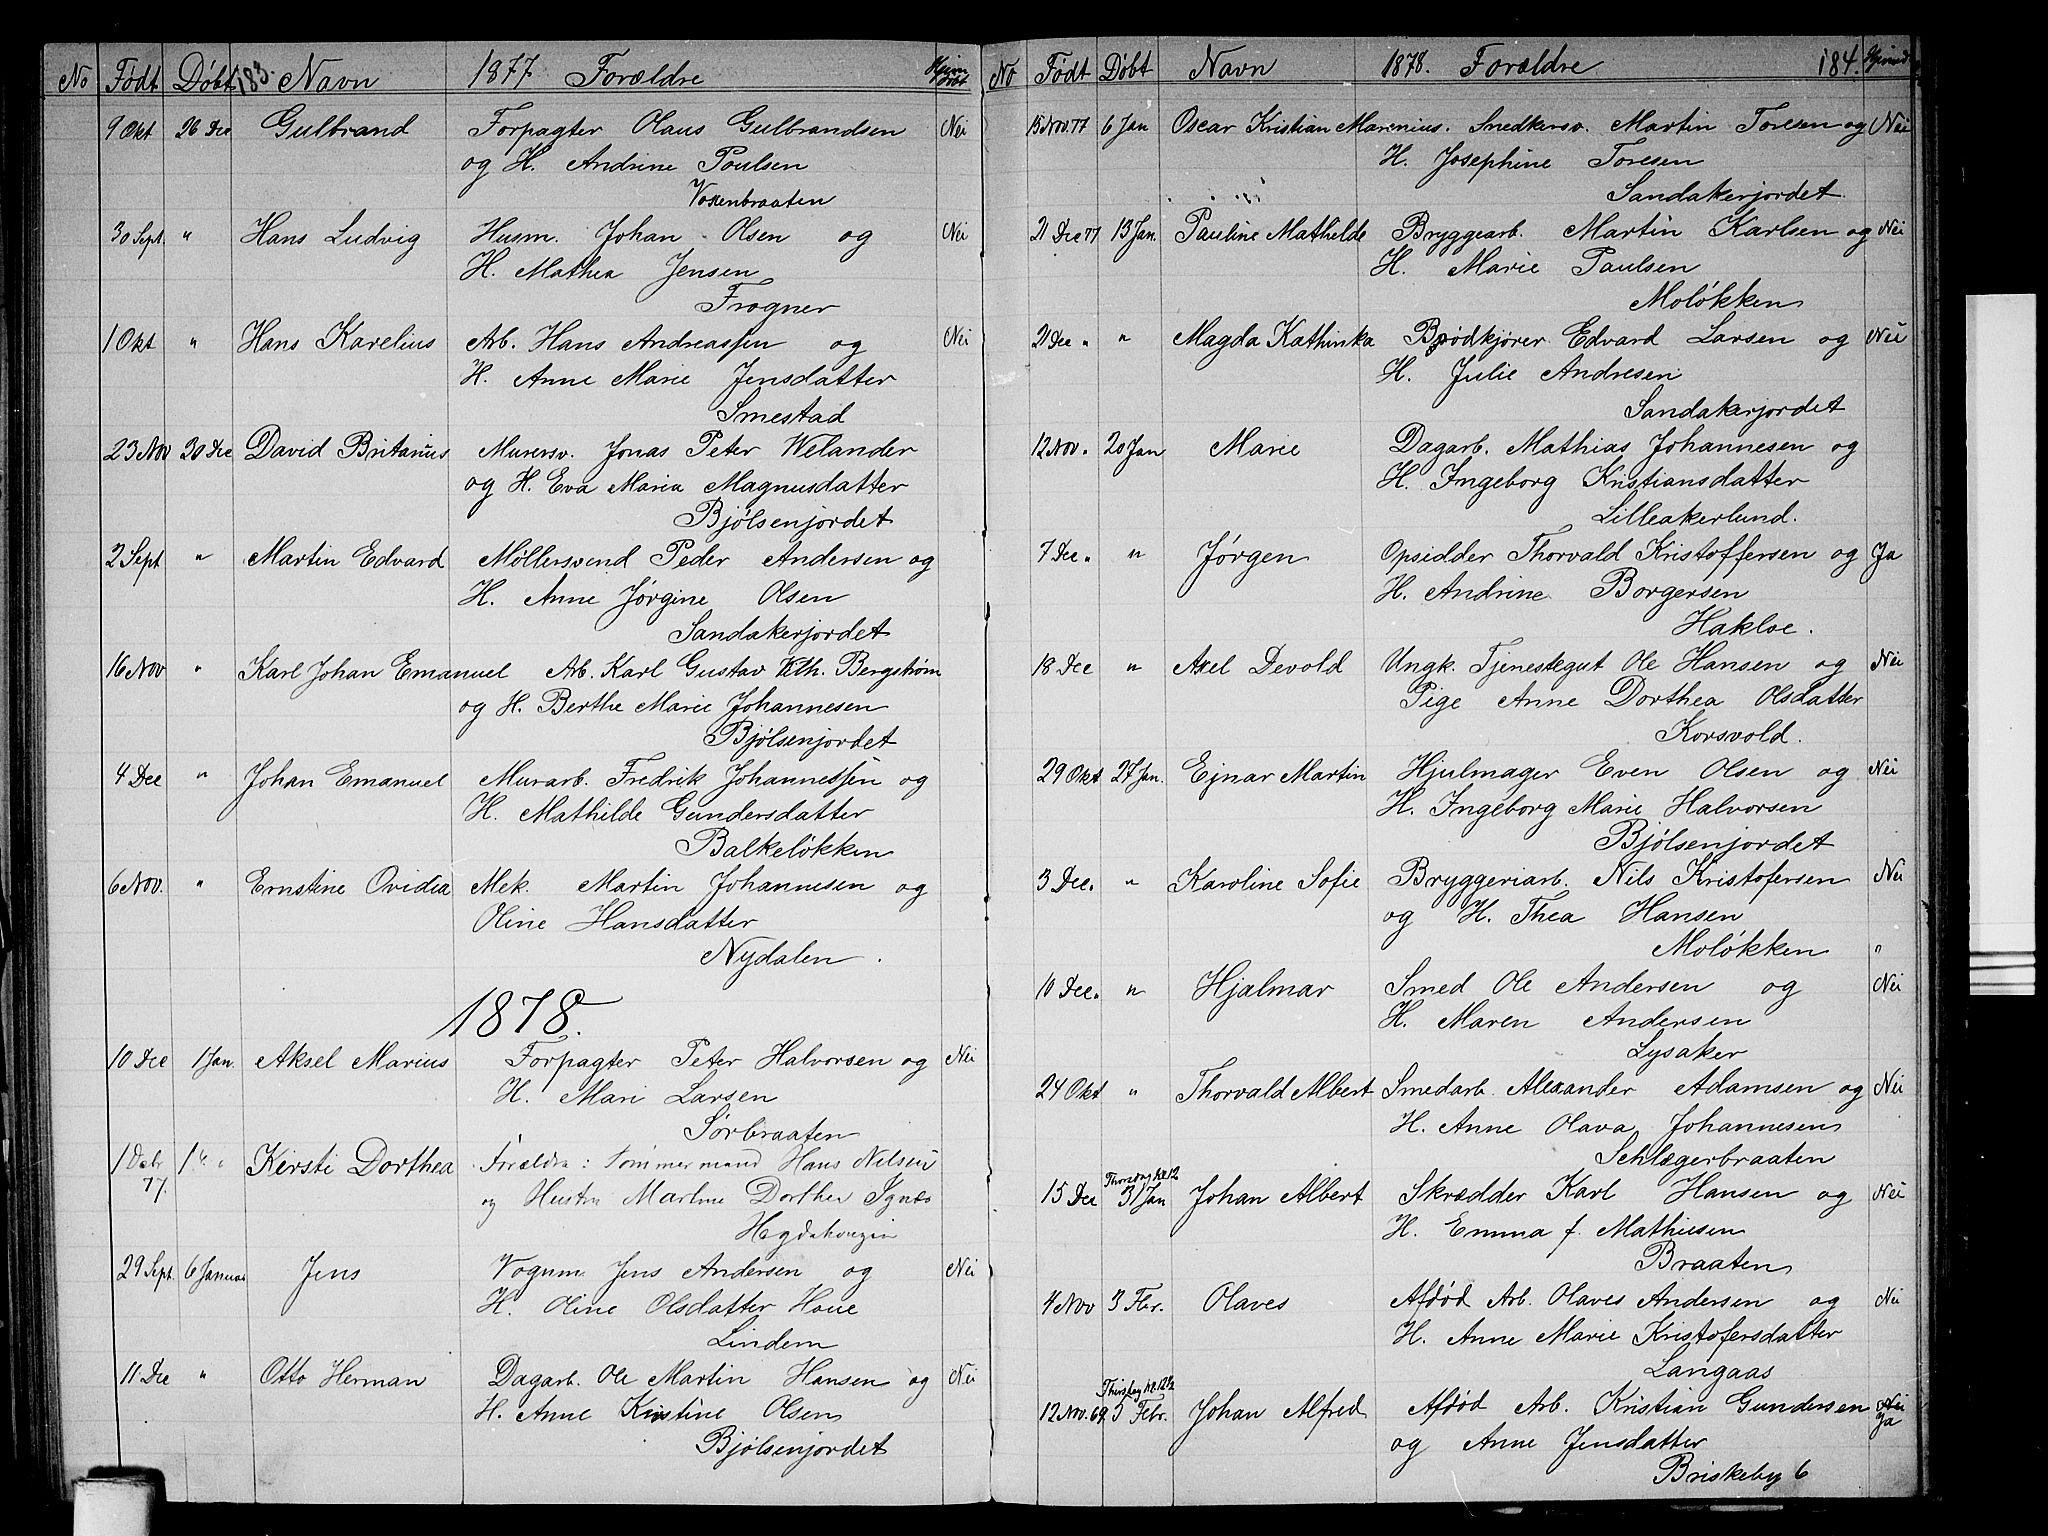 No Født Døbt 183. Navn 1877 Forældre Hjemdøbt
9 Okt 26 Dec Gulbrand Forpagter Olaus Gulbrandsen Nei
og H. Andrine Poulsen
Voxenbraaten
30 Sept. " Hans Ludvig Husm. Johan Olsen og Nei
H. Mathea Jensen
Frogner
1 Okt " Hans Karelius Arb. Hans Andreassen og Nei
H. Anne Marie Jensdatter
Smestad
23 Nov 30 Dec David Britanius Murersv. Jonas Peter Welander
og H. Eva Maria Magnusdatter
Bjølsenjordet
2 Sept " Martin Edvard Møllersvend Peder Andersen og
H. Anne Jørgine Olsen
Sandakerjordet
16 Nov " Karl Johan Emanuel Arb. Karl Gustav Vilh. Bergstrøm
og H. Berthe Marie Johannesen
Bjølsenjordet
4 Dec " Johan Emanuel Murarb. Fredrik Johannessen og
H. Mathilde Gundersdatter
Balkeløkken
6 Nov. " Ernstine Ovidia Mek. Martin Johannesen og
Oline Hansdatter
Nydalen.
1878.
10 Dec 1 Jan. Aksel Marius Forpagter Peter Halvorsen og Nei
H. Mari Larsen
Sørbraaten
1 Debr 1 Kirsti Dorthea Forældre: Tømmermand Hans Nilsen
77. og Hustru Martine Dorthea
29 Sept. 6 Januar Jens Vognm. Jens Andersen og Nei
H. Oline Olsdatter Houe
Lindern
11 Dec " Otto Herman Dagarb. Ole Martin Hansen og Nei
H. Anne Kristine Olsen
Bjølsenjordet
No Født Døbt Navn 1878. Forældre 184.
15 Nov. 77 6 Jan Oscar Kristian Marenius. Snedkersv. Martin Toresen og Nei
H. Josephine Toresen
Sandakerjordet
21 Dec 77 13 Jan. Pauline Mathilde Bryggearb. Martin Karlsen og Nei
H. Marie Paulsen
Moløkken
21 Dec " " Magda Kathinka Brødkjører Edvard Larsen og Nei
H. Julie Andresen
Sandakerjordet
12 Nov. " 20 Jan Marie Dagarb. Mathias Johannesen og
H. Ingeborg Kristiansdatter
Lilleakerlund.
7 Dec " " Jørgen Opsidder Thorvald Kristoffersen og Ja
H. Andrine Borgersen
Hakloe.
18 Dec " Axel Devold Ungk. Tjenestegut Ole Hansen og Nei
Pige Anne Dorthea Olsdatter
Korsvold.
29 Okt. 27 Jan. Ejnar Martin Hjulmager Even Olsen og Nei
H. Ingeborg Marie Halvorsen
Bjølsenjordet
3 Dec. " Karoline Sofie Bryggeriarb. Nils Kristofersen Nei
og H. Thea Hansen
Moløkken "
10 Dec. " Hjalmar Smed Ole Andersen og Nei
H. Maren Andersen
Lysaker
24 Okt " Thorvald Albert Smedarb. Alexander Adamsen og Nei
H. Anne Olava Johannesen
Schlægerbraaten
Thorsdag kl. 12
15 Dec 31 Jan Johan Albert Skrædder Karl Hansen og Nei
H. Emma f. Mathiesen
Braaten
4 Nov 3 Fbr. Olaves Afdød Arb. Olaves Andersen og Nei
H. Anne Marie Kristofersdatter
Langaas
Thirsdag kl. 12½
12 Nov. 69. 5 Febr. Johan Alfred Afdød Arb. Kristian Gundersen Nei
og Anne Jensdatter Ja
Briskeby 6